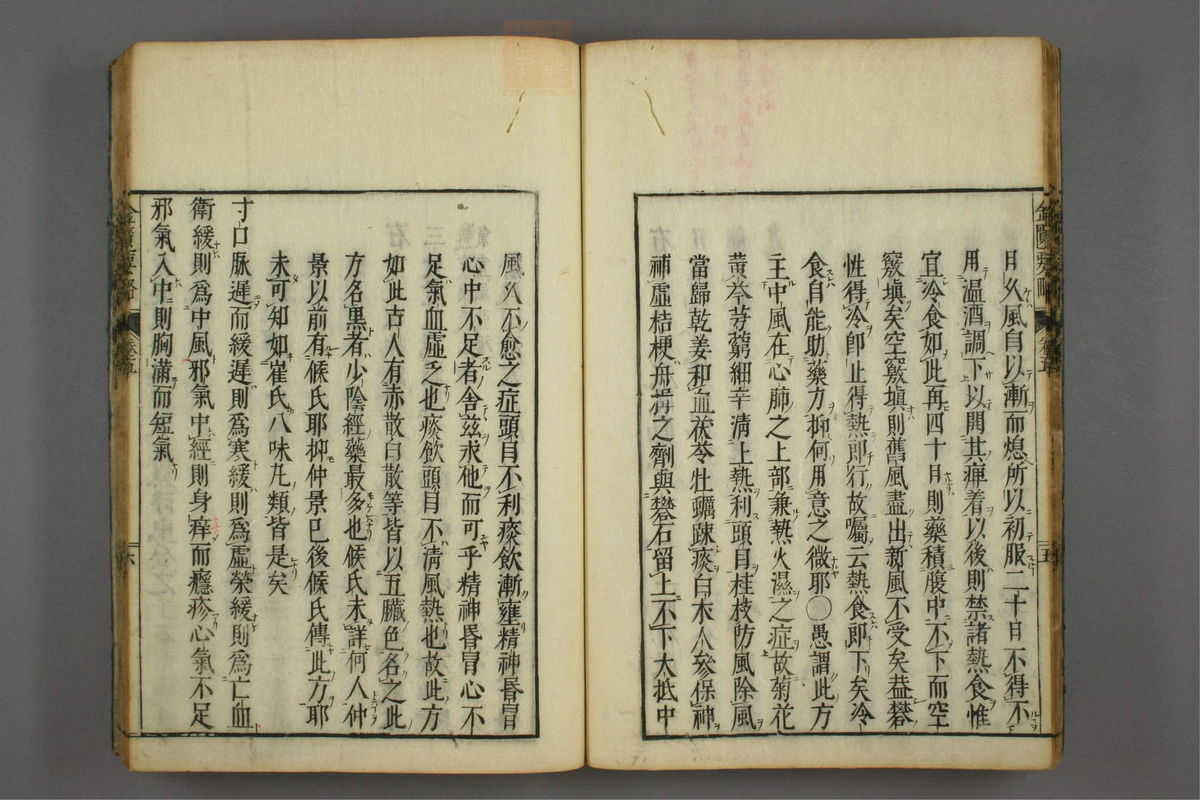 日久風自以漸而熄所以初服二十日不得不
用温酒調下以開其痺着以後則禁諸熱食惟
宜冷食如此再四十日則藥積腹中不下而空
竅塡矣空竅塡則舊風盡出新風不受矣盖礬
性得冷即止得熱即行故囑云熱食即下矣冷
食自能助藥力抑何用意之微耶〇愚謂此方
主中風在心肺之上部兼熱火濕之症故菊花
黄芩芎藭細辛淸上熱利頭目桂枝防風除風
當歸乾姜和血茯苓牡蠣踈痰白术人參保神
補虚桔梗舟揖之劑與礬石留上不下大抵中
風久不愈之症頭目不利痰飲漸壅精神昏冒
心中不足者舍茲求他而可乎精神昏冒心不
足氣血虚乏也痰飲頭目不淸風熱也故此方
如此古人有赤散白散等皆以五臟色名之此
方名黒者少陰經藥最多也候氏未詳何人仲
景以前有候氏耶抑仲景已後候氏傳此方耶
未可知如崔氏八味丸類皆是矣
寸口脉遲而緩遲則爲寒緩則爲虚榮緩則爲亡血
衛緩則爲中風邪氣中經則身痒而癮疹心氣不足
邪氣入中則胸滿而短氣